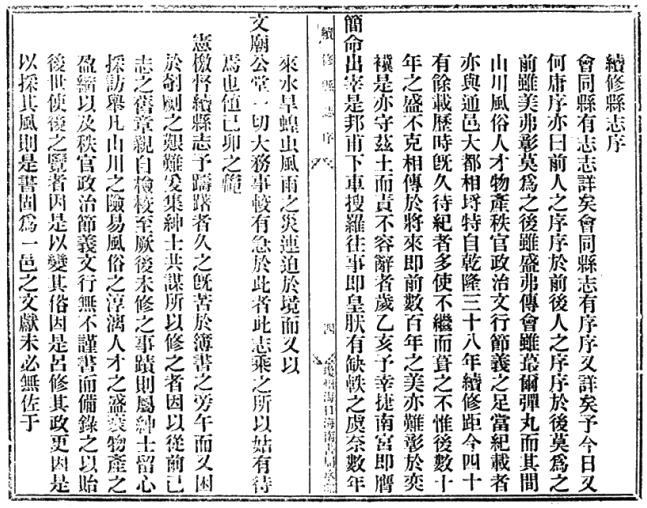 續修縣志序
會同縣有志志詳矣會同縣志有序序又詳矣予今日又
何庸序亦曰前人之序序於前後人之序序於後莫爲之
前雖美弗彰莫爲之後雖盛弗傳會雖蕞爾彈丸而其間
山川風俗人才物產秩官政治文行節義之足當紀載者
亦與通邑大都相埒特自乾隆三十八年續修距今四十
有餘載歷時旣久待紀者多使不繼而葺之不惟後數十
年之盛不克相傳於將來即前數百年之美亦難彰於奕
禩是亦守茲土而責不容辭者歲乙亥予幸捷南宮即膺
簡命出宰是邦甫下車搜羅往事即皇然有缺軼之虞奈數年
續修縣志序
四
瓊州海口海南書局承印
來水旱蝗虫風雨之災連迫於境而又以
文廟公堂一切大務事較有急於此者此志乘之所以姑有待
焉也値已卯之
憲檄督續縣志予躊躇者久之旣苦於簿書之旁午而又困
於剞劂之艱難爰集紳士共謀所以修之者因以從前已
志之舊章親自檢校至厥後未修之事蹟則屬紳士留心
採訪舉凡山川之險易風俗之淳漓人才之盛衰物產之
盈縮以及秩官政治節義文行無不謹書而備錄之以貽
後世使後之覽者因是以變其俗因是以修其政更因是
以採其風則是書固爲一邑之文獻未必無佐于